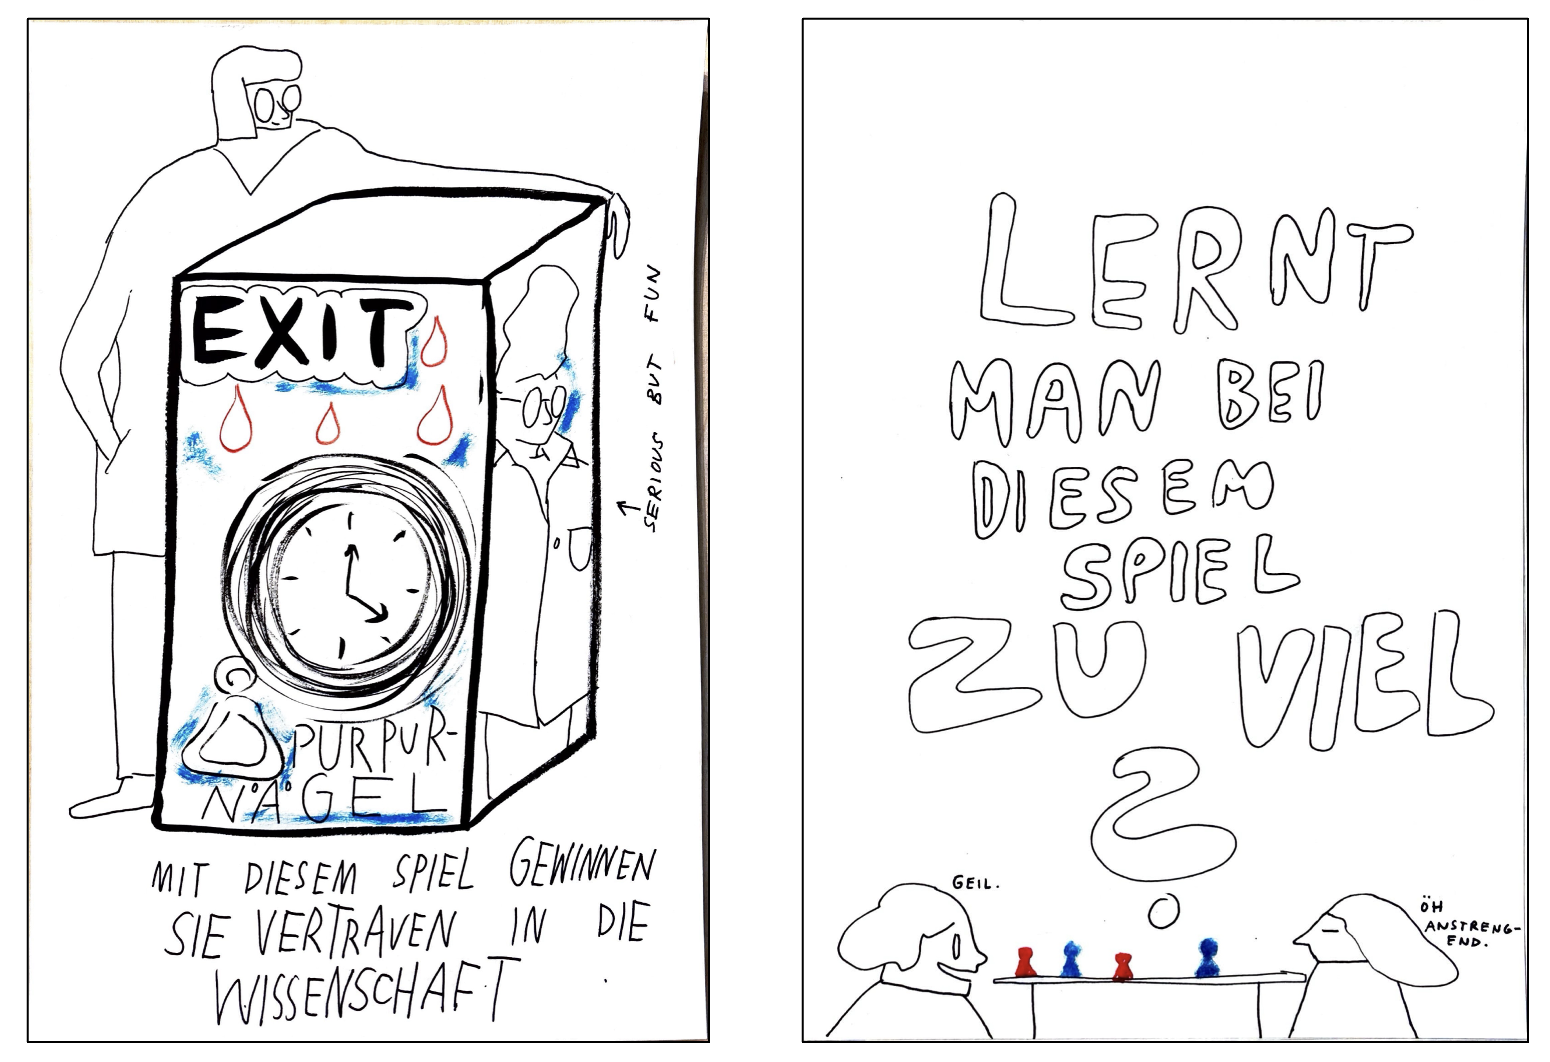 EXIT
SERIOUS BUT FUN
PURPUR-
NÄGEL
MIT DIESEM SPIEL GEWINNEN
SIE VERTRAUEN IN DIE
WISSENSCHAFT
LERNT
MAN BEI
DIESEM
SPIEL
ZU VIEL
?
GEIL.
ÖH
ANSTRENG-
END.